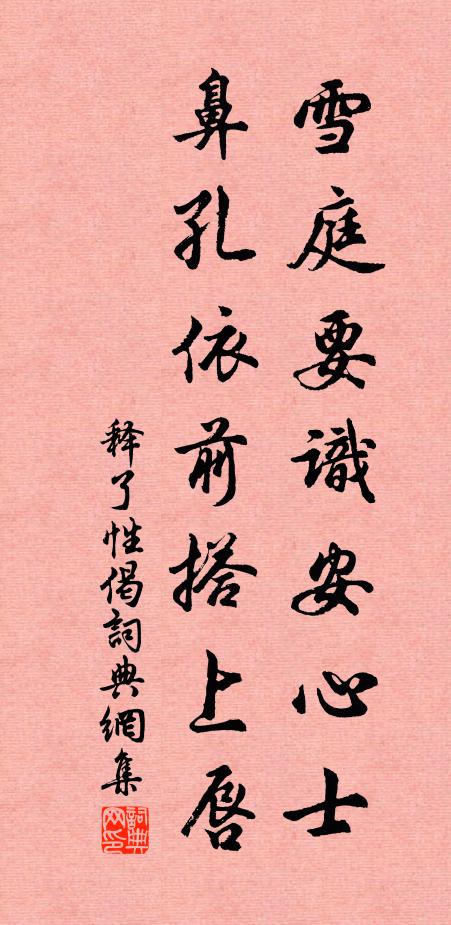 雪庭要識安心士
鼻孔依前搭上唇
释了性偈詞典網集
詞典网印